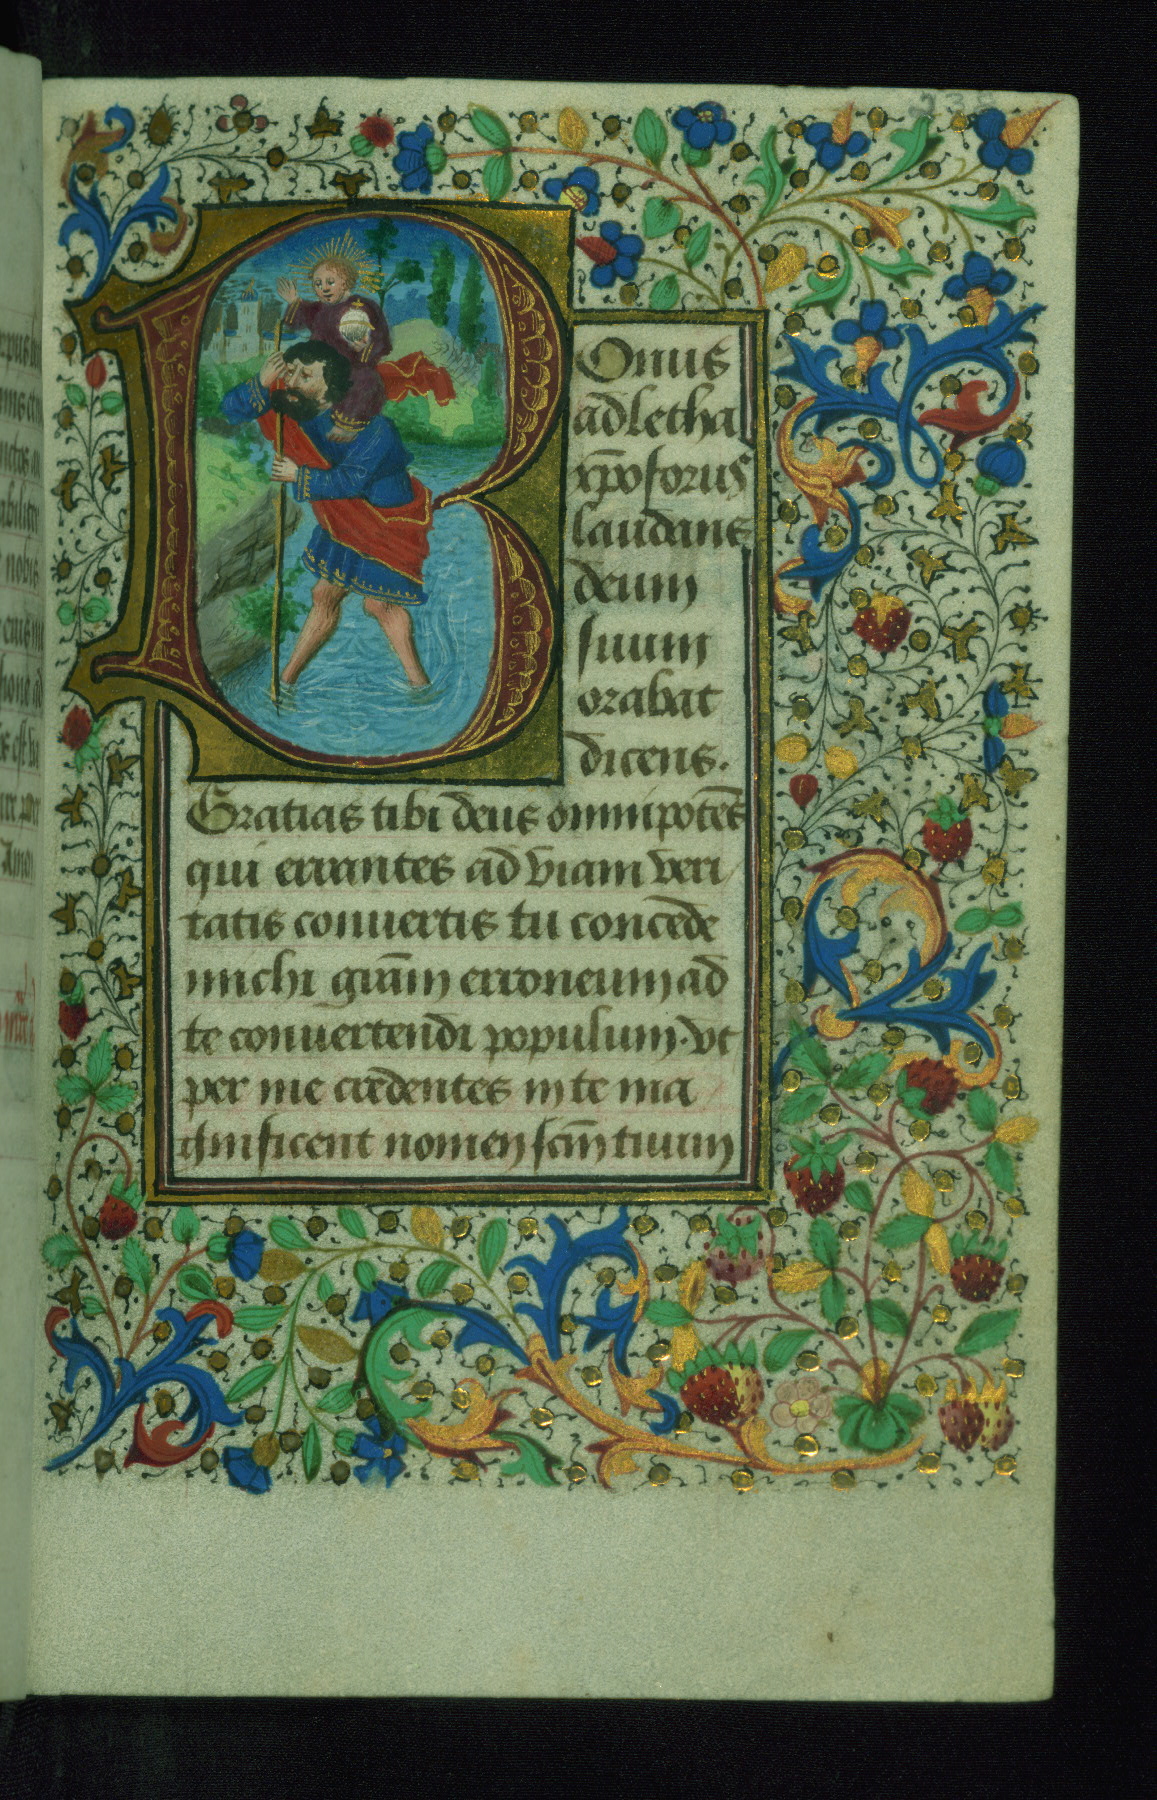 BOnus
adletha
xp̄oforus
laudans
deum
suum
orabat
dicens.
Gratias tibi deus omnipotēs
qui errantes ad viam veri
tatis conuertis tu concede
michi grām erroneum ad
te conuertendi populum. vt
per me credentes in te ma
gnificent nomen scm̄ tuum